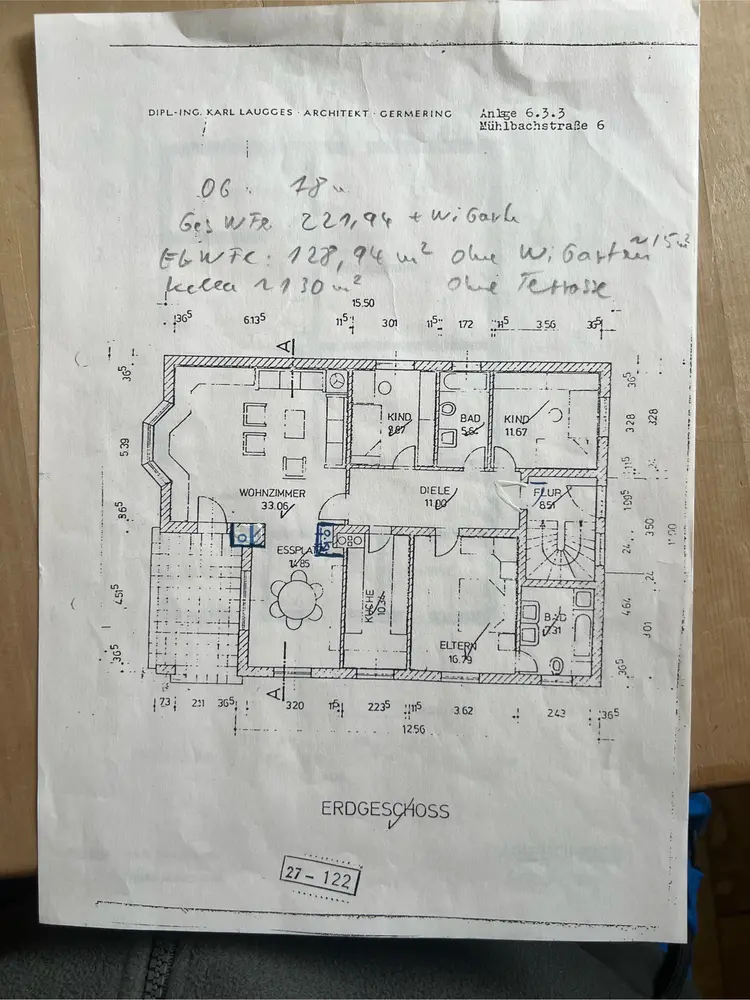 DIPL-ING. KARL LAUGGES · ARCHITEKT · GERMERING
Anlge 6.3.3
Mühlbachstraße 6
OG : 78
Ges Wfl. 221,94 + WiGarten
EG WFL: 128,94 m² ohne WiGarten ~15 m²
Keller ~ 130 m² ohne Terrasse
15.50
36⁵ 6.13⁵ 11⁵ 3.01 11⁵ 1.72 11⁵ 3.56 36⁵
A
36⁵
5.39
8.6⁵
4.51⁵
36⁵
KIND
9.87
BAD
5.64
KIND
11.67
WOHNZIMMER
33.06
DIELE
11.00
FLUR
8.51
ESSPLATZ
14.85
KÜCHE
ELTERN
16.79
BAD
7.31
36⁵
3.28
3.28
11⁵
24
3.50
24
4.64
3.01
36⁵
A
73 2.11 36⁵ 3.20 11⁵ 2.23⁵ 11⁵ 3.62 2.43 36⁵
12.56
ERDGESCHOSS
27 - 122